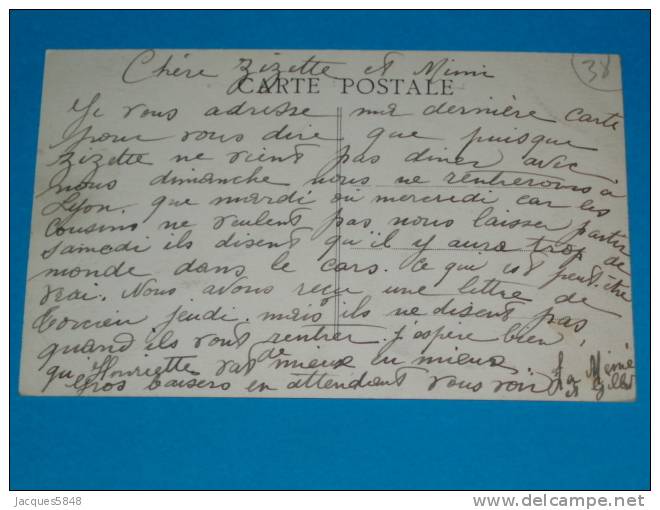 Chère Zizette et Mimi
38
CARTE POSTALE
Je vous adresse ma dernière carte
pour vous dire que puisque
Zizette ne vient pas diner avec
nous dimanche nous ne rentrerons à
Lyon, que mardi ou mercredi car les
cousins ne veulent pas nous laisser partir
samedi ils disent qu'il y aura trop de
monde dans le cars. Ce qui est peut-être
vrai. Nous avons reçu une lettre de
jeudi. mais ils ne disent pas,
quand ils vont rentrer. j'espère bien
qu'Henriette va de mieux en mieux.
Gros baisers en attendant vous voir
La Mémé
et
Jacques5848
delcampe.net